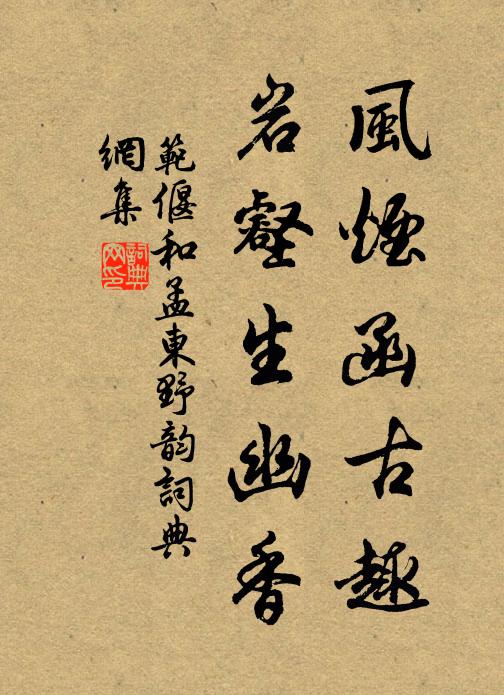 風煙函古趣
岩壑生幽香
範偃和孟東野韵詞典
網集
詞典
网印